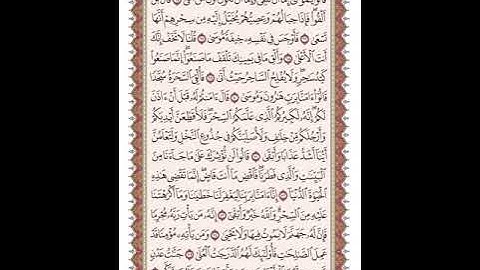 أَلْقُوا۟ ۖ فَإِذَا حِبَالُهُمْ وَعِصِيُّهُمْ يُخَيَّلُ إِلَيْهِ مِن سِحْرِهِمْ أَنَّهَا
تَسْعَىٰ ۝ فَأَوْجَسَ فِى نَفْسِهِۦ خِيفَةً مُّوسَىٰ ۝ قُلْنَا لَا تَخَفْ إِنَّكَ
أَنتَ ٱلْأَعْلَىٰ ۝ وَأَلْقِ مَا فِى يَمِينِكَ تَلْقَفْ مَا صَنَعُوٓا۟ ۖ إِنَّمَا صَنَعُوا۟
كَيْدُ سَٰحِرٍ ۖ وَلَا يُفْلِحُ ٱلسَّاحِرُ حَيْثُ أَتَىٰ ۝ فَأُلْقِىَ ٱلسَّحَرَةُ سُجَّدًا
قَالُوٓا۟ ءَامَنَّا بِرَبِّ هَٰرُونَ وَمُوسَىٰ ۝ قَالَ ءَامَنتُمْ لَهُۥ قَبْلَ أَنْ ءَاذَنَ
لَكُمْ ۖ إِنَّهُۥ لَكَبِيرُكُمُ ٱلَّذِى عَلَّمَكُمُ ٱلسِّحْرَ ۖ فَلَأُقَطِّعَنَّ أَيْدِيَكُمْ
وَأَرْجُلَكُم مِّنْ خِلَٰفٍ وَلَأُصَلِّبَنَّكُمْ فِى جُذُوعِ ٱلنَّخْلِ وَلَتَعْلَمُنَّ
أَيُّنَآ أَشَدُّ عَذَابًا وَأَبْقَىٰ ۝ قَالُوا۟ لَن نُّؤْثِرَكَ عَلَىٰ مَا جَآءَنَا مِنَ
ٱلْبَيِّنَٰتِ وَٱلَّذِى فَطَرَنَا ۖ فَٱقْضِ مَآ أَنتَ قَاضٍ ۖ إِنَّمَا تَقْضِى هَٰذِهِ
ٱلْحَيَوٰةَ ٱلدُّنْيَآ ۝ إِنَّآ ءَامَنَّا بِرَبِّنَا لِيَغْفِرَ لَنَا خَطَٰيَٰنَا وَمَآ أَكْرَهْتَنَا
عَلَيْهِ مِنَ ٱلسِّحْرِ ۗ وَٱللَّهُ خَيْرٌ وَأَبْقَىٰٓ ۝ إِنَّهُۥ مَن يَأْتِ رَبَّهُۥ مُجْرِمًا
فَإِنَّ لَهُۥ جَهَنَّمَ لَا يَمُوتُ فِيهَا وَلَا يَحْيَىٰ ۝ وَمَن يَأْتِهِۦ مُؤْمِنًا قَدْ
عَمِلَ ٱلصَّٰلِحَٰتِ فَأُو۟لَٰٓئِكَ لَهُمُ ٱلدَّرَجَٰتُ ٱلْعُلَىٰ ۝ جَنَّٰتُ عَدْنٍ